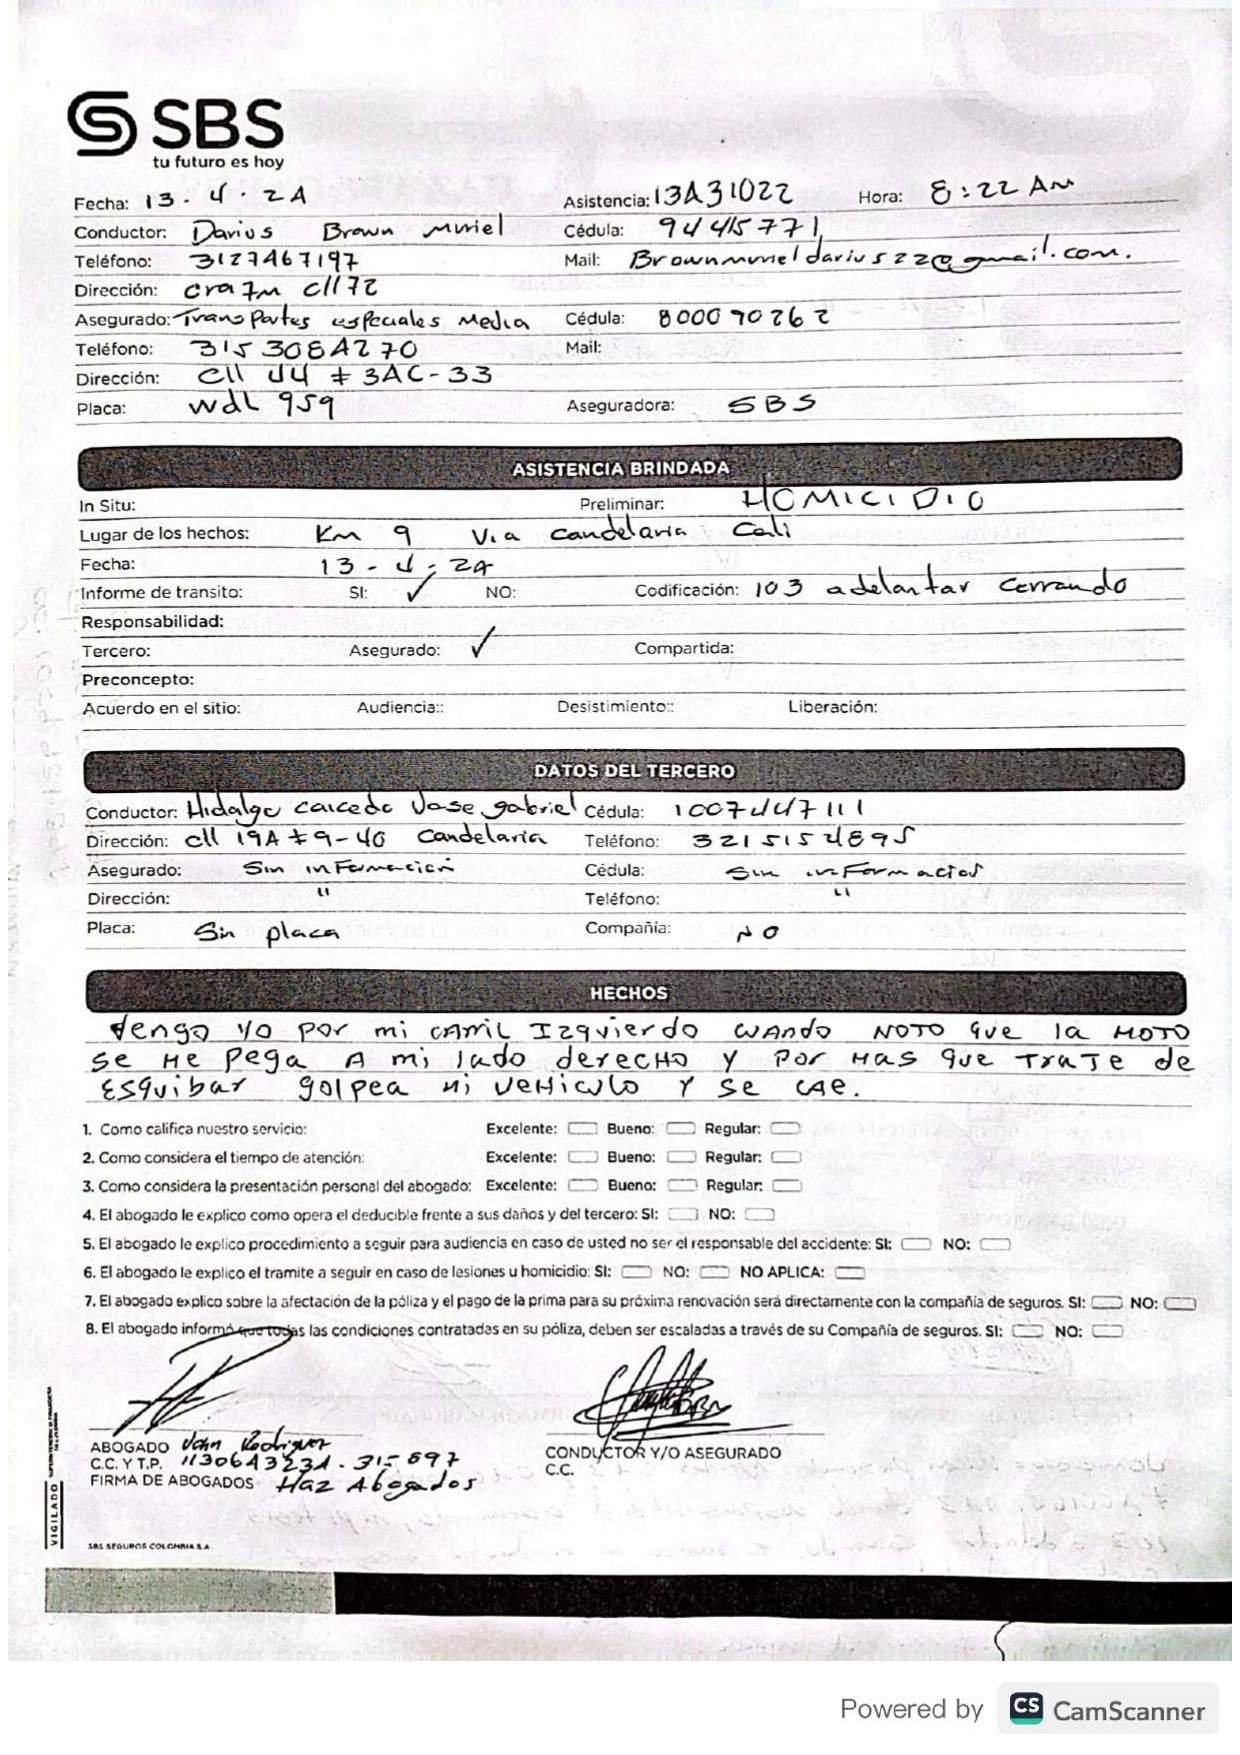 SBS
tu futuro es hoy
Fecha: 13 - 4 - 24 Asistencia: 13431022 Hora: 8:22 AM
Conductor: Darius Brown Muriel Cédula: 94415771
Teléfono: 3127467197 Mail: Brownmurieldarius22@gmail.com.
Dirección: cra 7m cll 72
Asegurado: Transportes especiales Media Cédula: 800090262
Teléfono: 3153084270 Mail:
Dirección: cll 44 # 3AC-33
Placa: wdl 959 Aseguradora: SBS
ASISTENCIA BRINDADA
In Situ: Preliminar: HOMICIDIO
Lugar de los hechos: Km 9 Via Candelaria y Cali
Fecha: 13 - 4 - 24
Informe de transito: SI: ✓ NO: Codificación: 103 adelantar cerrando
Responsabilidad:
Tercero: Asegurado: ✓ Compartida:
Preconcepto:
Acuerdo en el sitio: Audiencia:: Desistimiento:: Liberación:
DATOS DEL TERCERO
Conductor: Hidalgo caicedo Jose gabriel Cédula: 1007447111
Dirección: cll 19A # 9-40 Candelaria Teléfono: 3215154895
Asegurado: Sin informacion Cédula: Sin informacion
Dirección: " Teléfono: "
Placa: Sin placa Compañia: NO
HECHOS
Vengo yo por mi CARRIL IZQuierdo CUANDO NOTO Que la MOTO
se Me pega A mi lado derecHo y por Mas que TRATE de
ESquibar golpea mi VeHiculo Y se CAE.
1. Como califica nuestro servicio: Excelente: Bueno: Regular:
2. Como considera el tiempo de atención: Excelente: Bueno: Regular:
3. Como considera la presentación personal del abogado: Excelente: Bueno: Regular:
4. El abogado le explico como opera el deducible frente a sus daños y del tercero: SI: NO:
5. El abogado le explico procedimiento a seguir para audiencia en caso de usted no ser el responsable del accidente: SI: NO:
6. El abogado le explico el tramite a seguir en caso de lesiones u homicidio: SI: NO: NO APLICA:
7. El abogado explico sobre la afectación de la póliza y el pago de la prima para su próxima renovación será directamente con la compañía de seguros. SI: NO:
8. El abogado informó que todas las condiciones contratadas en su póliza, deben ser escaladas a través de su Compañía de seguros. SI: NO:
ABOGADO John Rodriguez
C.C. Y T.P. 1130643234 - 315697
FIRMA DE ABOGADOS Haz Abogados
CONDUCTOR Y/O ASEGURADO
C.C.
VIGILADO
SBS SEGUROS COLOMBIA S.A
Powered by CS CamScanner